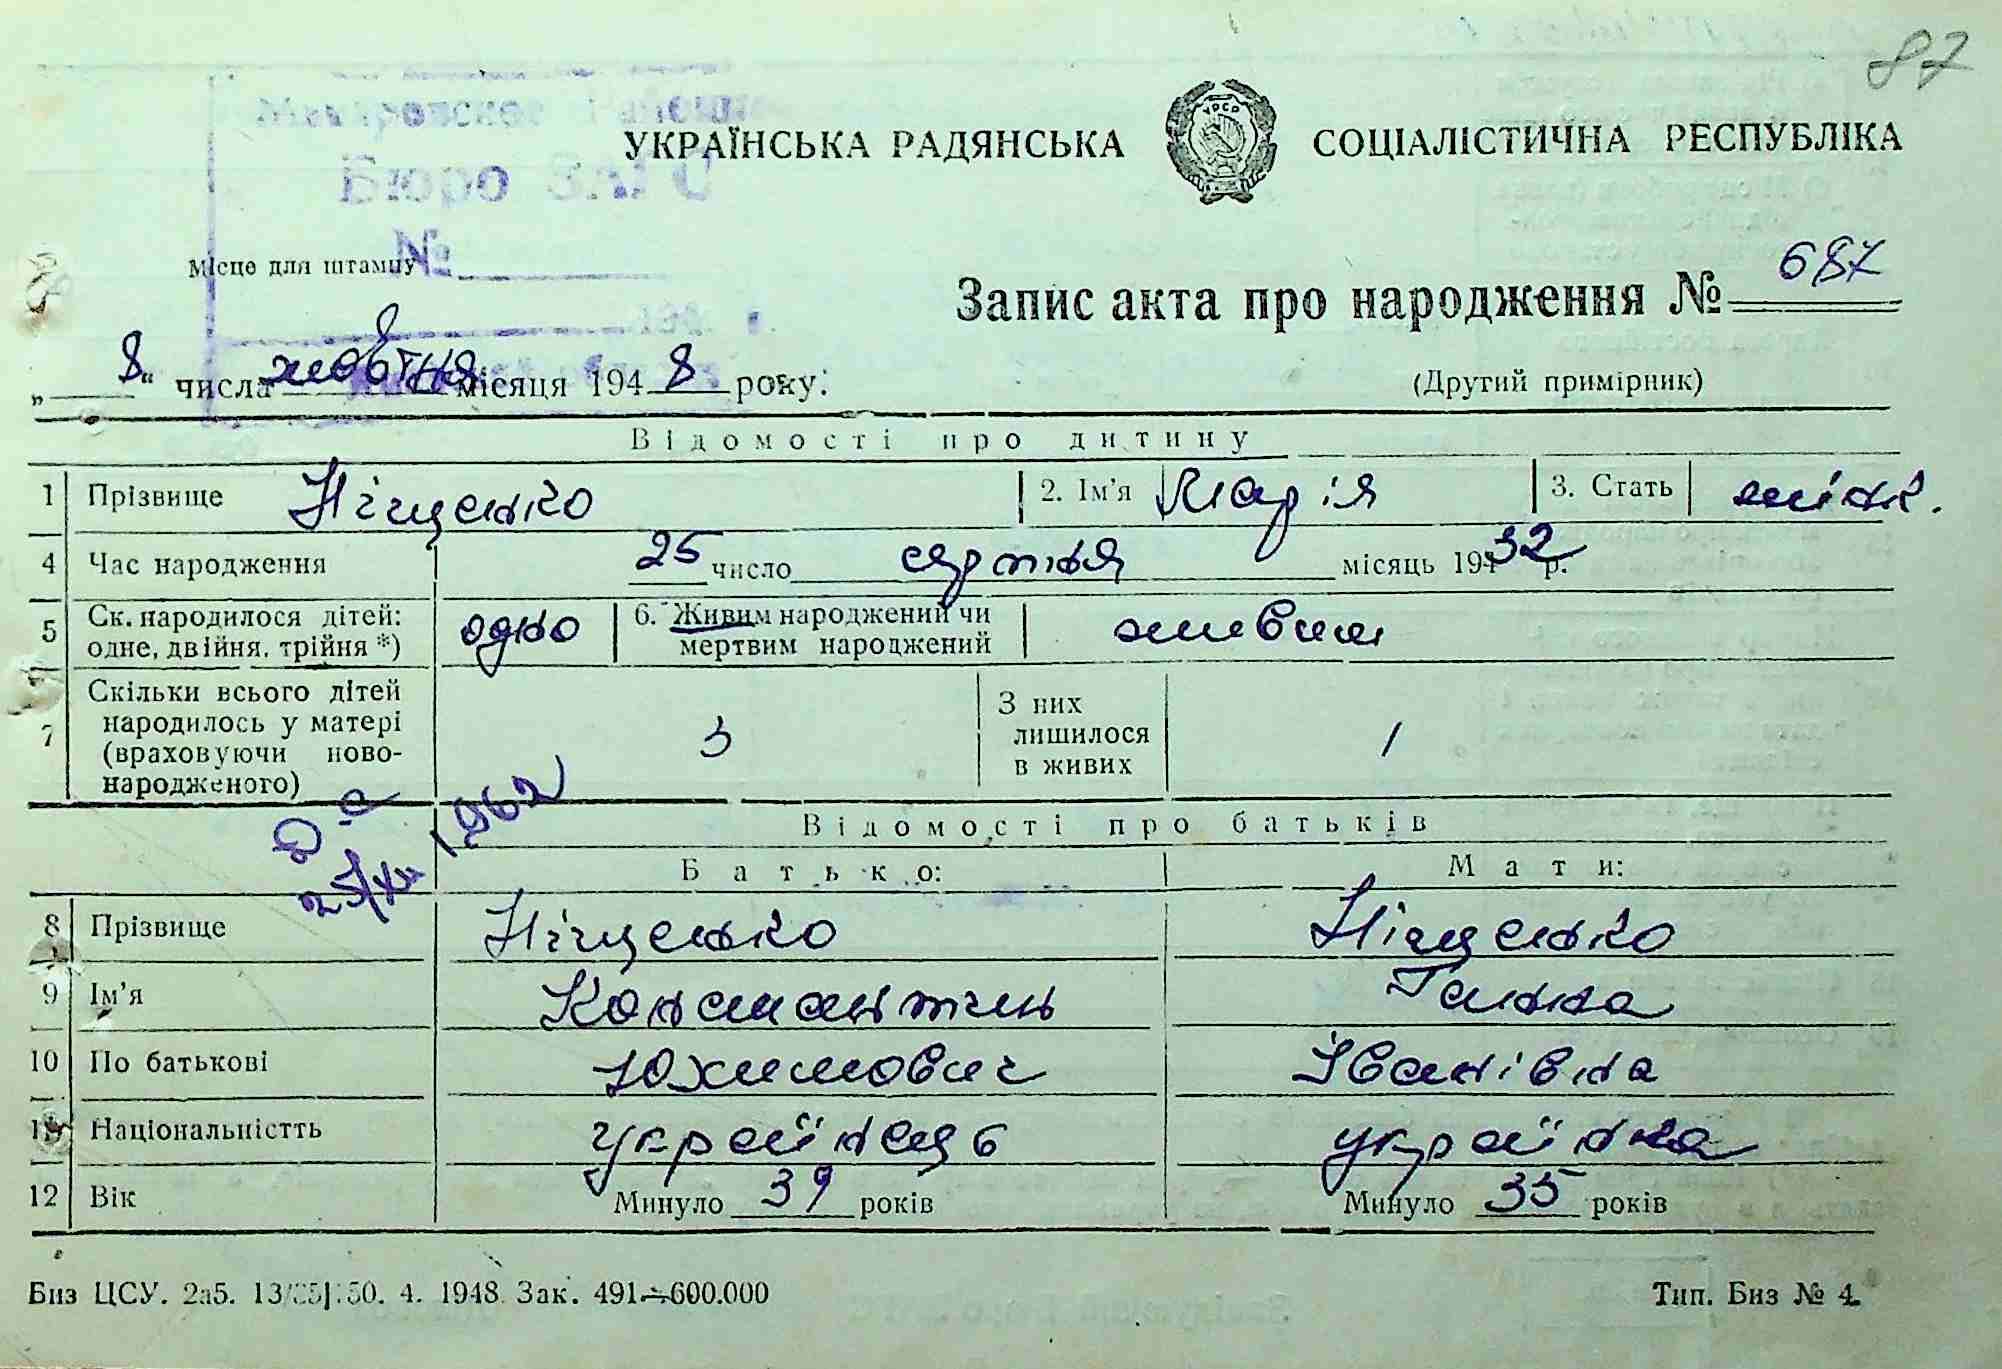 87
Бюро ЗАГС
№
УКРАЇНСЬКА РАДЯНСЬКА СОЦІАЛІСТИЧНА РЕСПУБЛІКА
УРСР
Місце для штампу
Запис акта про народження № 687
„8“ числа жовтня місяця 1948 року.
(Другий примірник)
Відомості про дитину
1 Прізвище Ніщенко 2. Ім’я Марія 3. Стать жіноч.
4 Час народження 25 число серпня місяць 1932 р.
5 Ск. народилося дітей: одне, двійня, трійня *) одно 6. Живим народжений чи мертвим народжений живим
7 Скільки всього дітей народилось у матері (враховуючи ново-народженого) 3 З них лишилося в живих 1
25/XII 1962
Відомості про батьків
Батько: Мати:
8 Прізвище Ніщенко Ніщенко
9 Ім’я Констянтин Ганна
10 По батькові Юхимович Іванівна
11 Національністть українець українка
12 Вік Минуло 39 років Минуло 35 років
Биз ЦСУ. 2а5. 4. 1948 Зак. 491—600.000
Тип. Биз № 4.